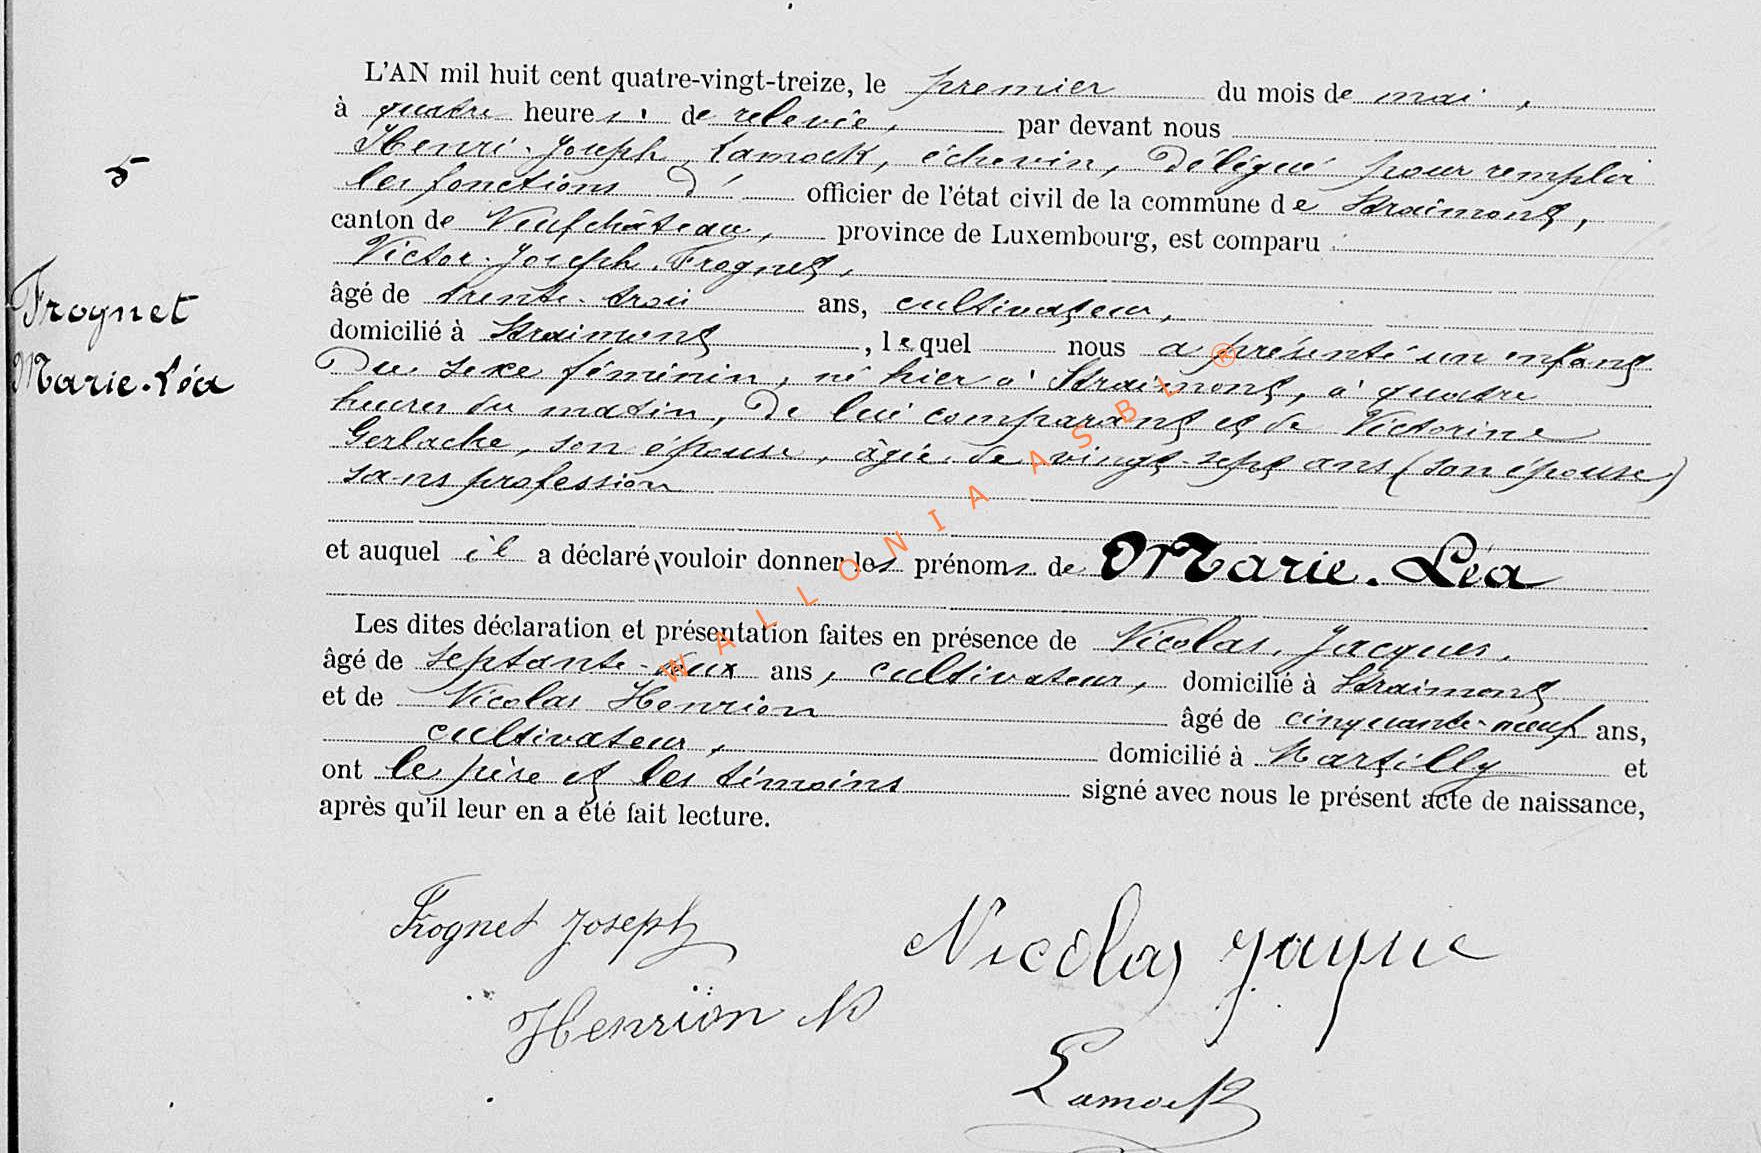 L'AN mil huit cent quatre-vingt-treize, le premier du mois de mai,
à quatre heures de relevée, par devant nous
Henri-Joseph Lamock, échevin, délégué pour remplir
5
les fonctions d' officier de l'état civil de la commune de Straimont,
canton de Neufchâteau, province de Luxembourg, est comparu
Victor-Joseph Frognet,
Frognet
Marie-Léa
âgé de trente-trois ans, cultivateur,
domicilié à Straimont, lequel nous a présenté un enfant
du sexe féminin, né hier à Straimont, à quatre
heures du matin, de lui comparant et de Victorine
Gerlache, son épouse, âgée de vingt-sept ans (son épouse)
sans profession
et auquel il a déclaré vouloir donner les prénoms de Marie-Léa
Les dites déclaration et présentation faites en présence de Nicolas, Jacques,
âgé de septante-deux ans, cultivateur, domicilié à Straimont
et de Nicolas Henrion âgé de cinquante-neuf ans,
cultivateur, domicilié à Martilly et
ont le père et les témoins signé avec nous le présent acte de naissance,
après qu'il leur en a été fait lecture.
Frognet Joseph
Nicolas Jacque
Henrion N
Lamock
WALLONIA ASBL ®